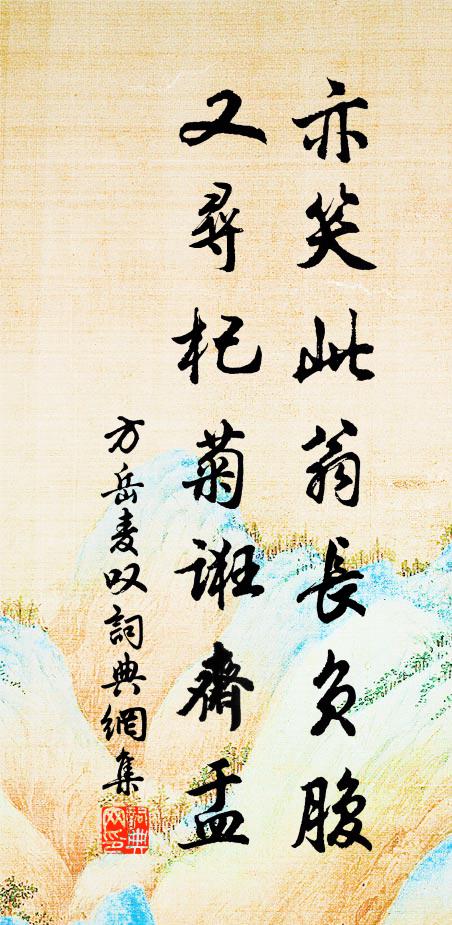 亦笑此翁長負腹
又尋杞菊誑齋盂
方岳麦叹詞典網集
詞典网印